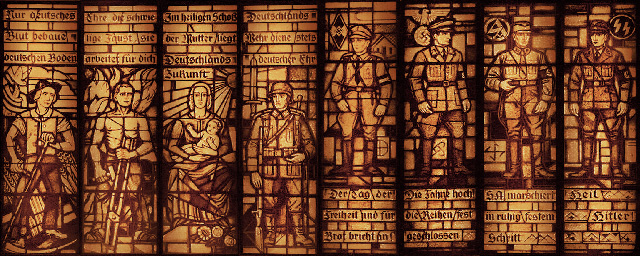 Nur deutsches
Blut bebaue
deutschen Boden
Ehre die schwie=
lige Faust Sie
arbeitet für dich
Im heiligen Schoß
der Mutter liegt
Deutschlands
Zukunft
Deutschlands
Wehr diene stets
deutscher Ehr
Der Tag der
Freiheit und für
Brot bricht an
Die Fahne hoch
die Reihen fest
geschlossen
SA marschiert
in ruhig festem
Schritt
Heil
Hitler